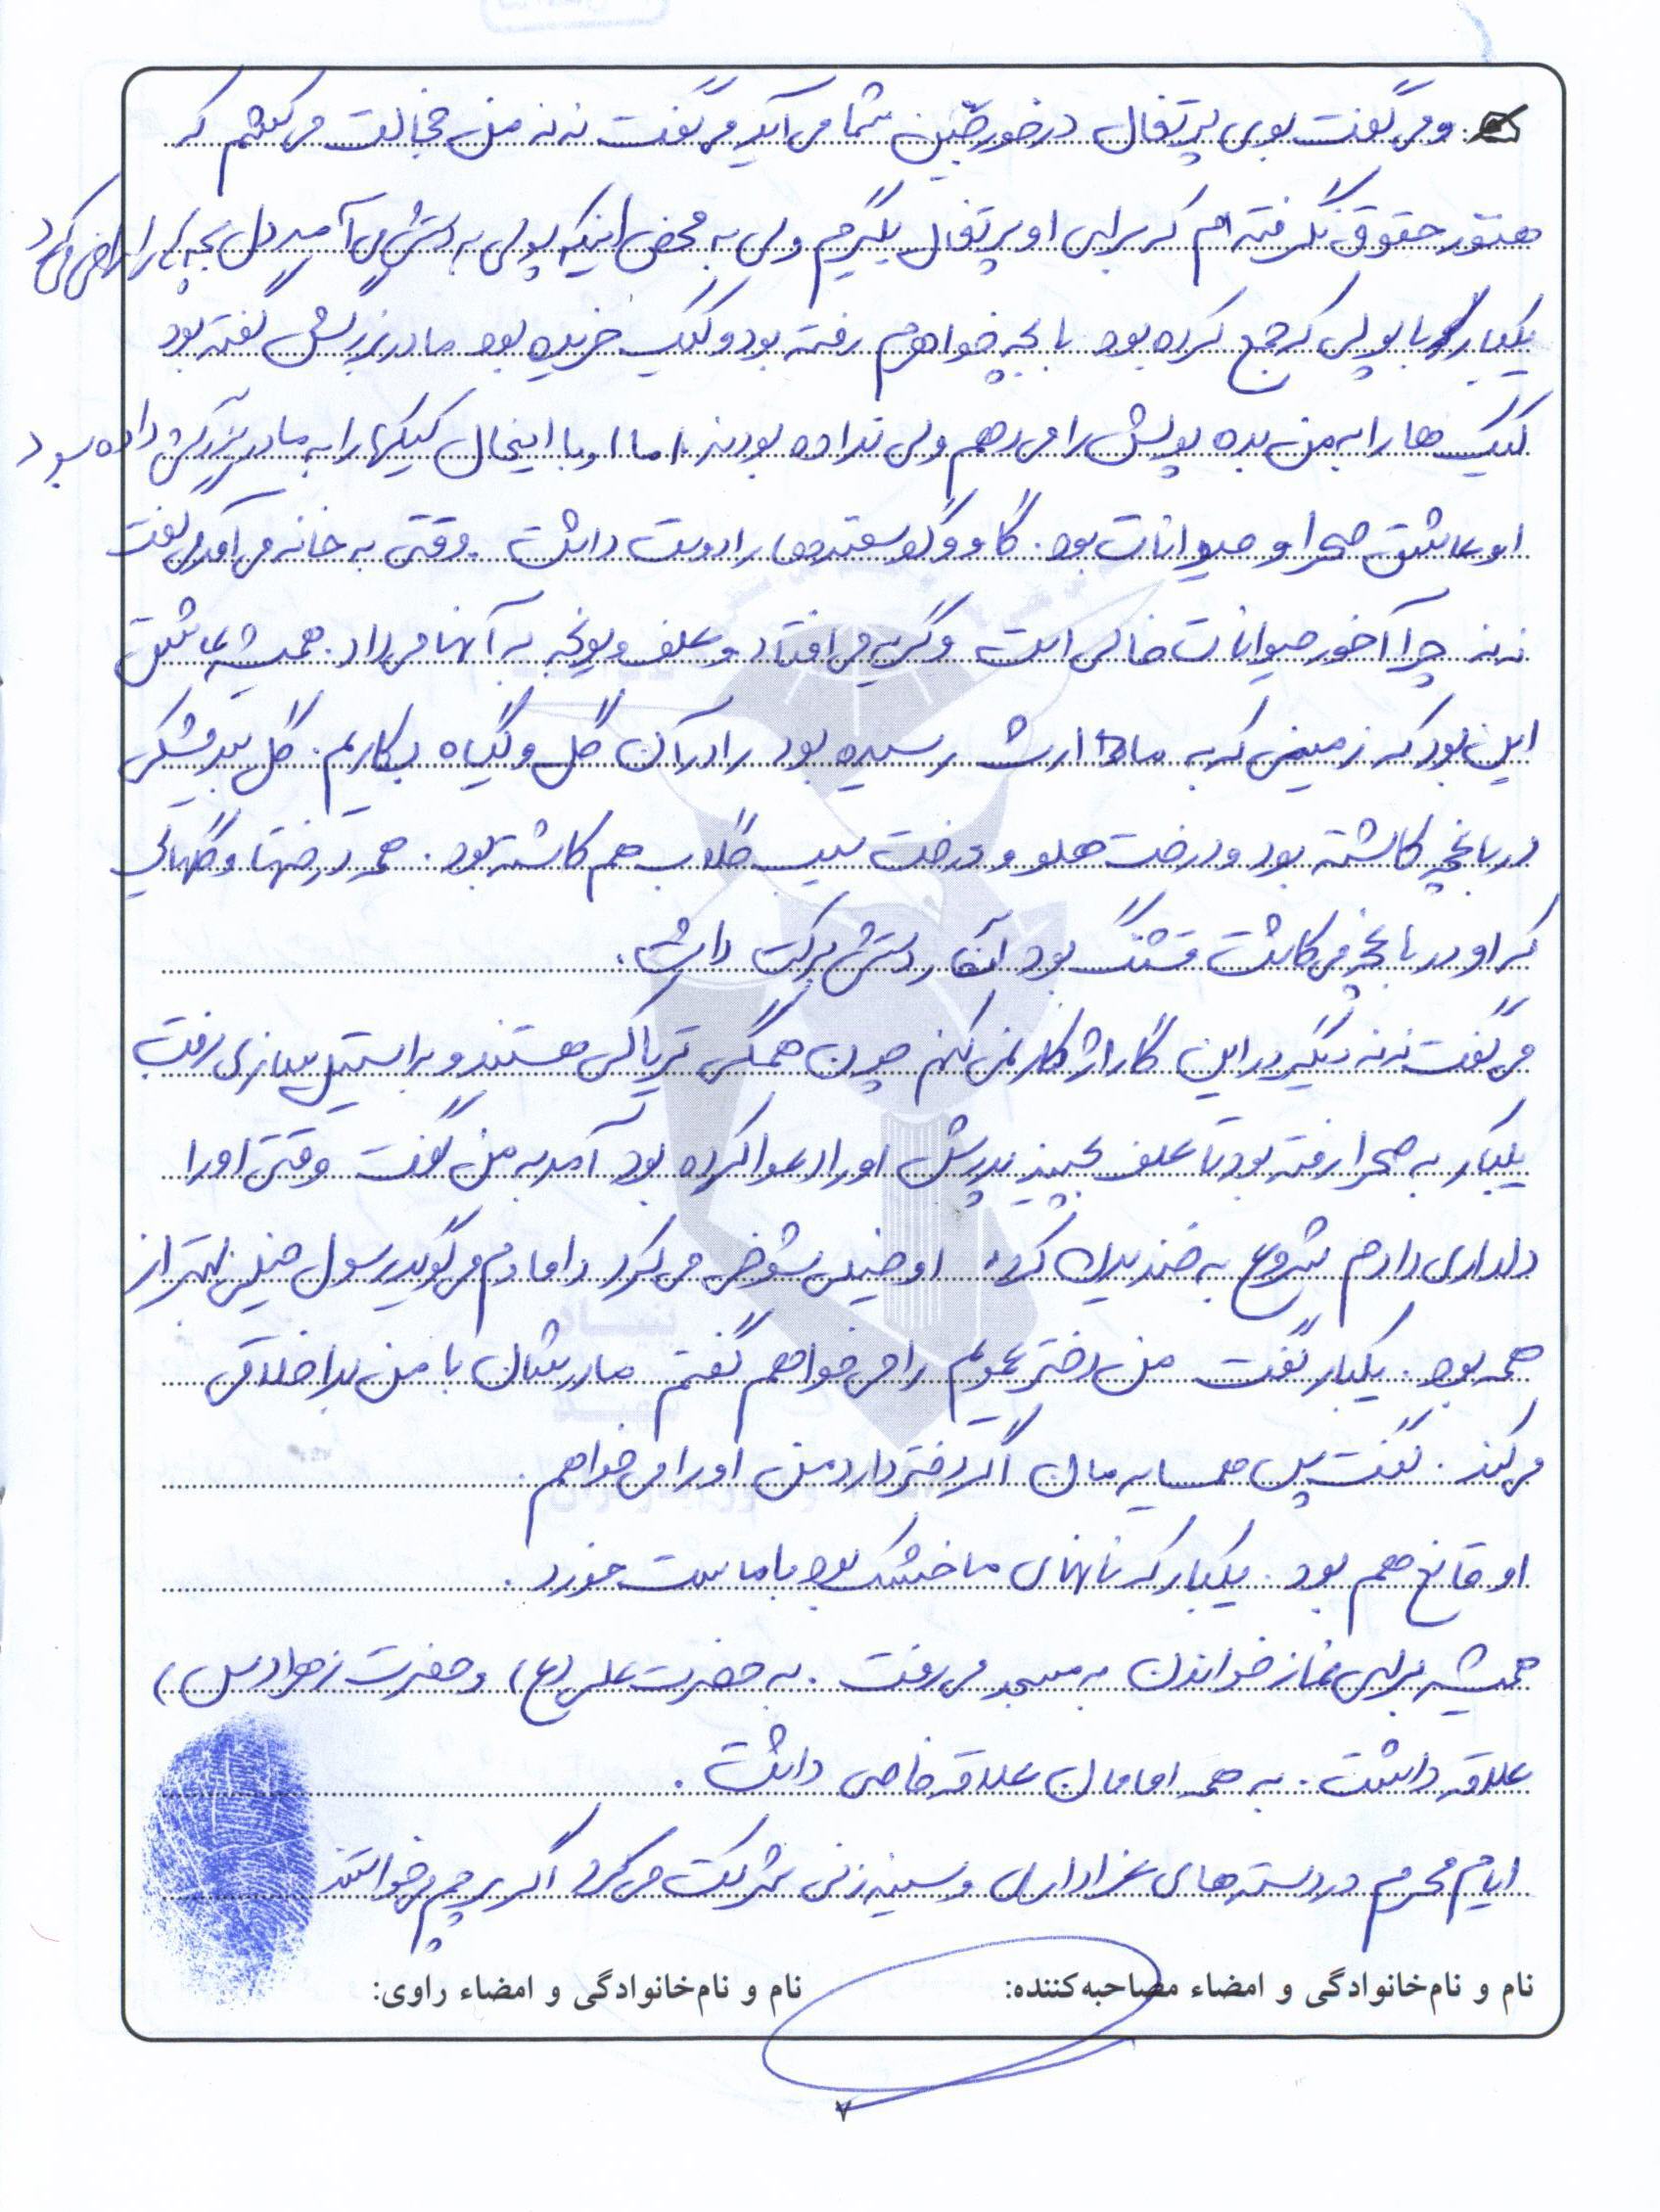 و می گفت بوی پرتقال در خورجین شما می آید می گفت ننه من خجالت می کشم که
هنوز حقوق نگرفته ام که برای او پرتقال بگیرم ولی به محض اینکه پولی به دستش می آمد دل بچه را راضی می کرد
یکبار با پولی که جمع کرده بود با بچه خواهرم رفته بود و کیک خریده بود مادربزرگش گفته بود
کیک ها را به من بده پولش را می دهم ولی نداده بودند اما او با اینحال کیکها را به مادربزرگش داده بود
او عاشق صحرا و حیوانات بود. گاو و گوسفندها را دوست داشت. وقتی به خانه می آمد می گفت
ننه چرا آخور حیوانات خالی است و گریه می افتاد و علف و یونجه به آنها می داد. همیشه عاشق
این بود که زمینی که به ما ارث رسیده بود را در آن گل و گیاه بکاریم. گل بیدمشکی
در باغچه کاشته بود و درخت هلو و درخت سیب گلاب هم کاشته بود. همه درختها و گلهایی
که او در باغچه می کاشت قشنگ بود آنقدر دستش برکت داشت.
می گفت ننه دیگر در این گاراژ کار نمی کنم چون همگی تریاکی هستند و به استیل سازی رفت
یکبار به صحرا رفته بود تا علف بچیند پدرش او را دعوا کرده بود آمد به من گفت وقتی او را
دلداری دادم شروع به خندیدن کرد. او خیلی شوخی می کرد دامادم می گوید رسول خیلی بهتر از
همه بود. یکبار گفت من دختر عمویم را می خواهم گفتم مادرشان با من بداخلاقی
می کند. گفت پس همسایه مان اگر دختر دارد من او را می خواهم.
او قانع هم بود. یکبار که نانهای ما خشک بود با ماست خورد.
همیشه برای نماز خواندن به مسجد می رفت. به حضرت علی (ع) و حضرت زهرا (س)
علاقه داشت. به همه امامان علاقه خاصی داشت.
ایام محرم در دسته های عزاداری و سینه زنی شرکت می کرد اگر پرچم می خواستند
نام و نام‌خانوادگی و امضاء مصاحبه‌کننده: نام و نام‌خانوادگی و امضاء راوی:
۷